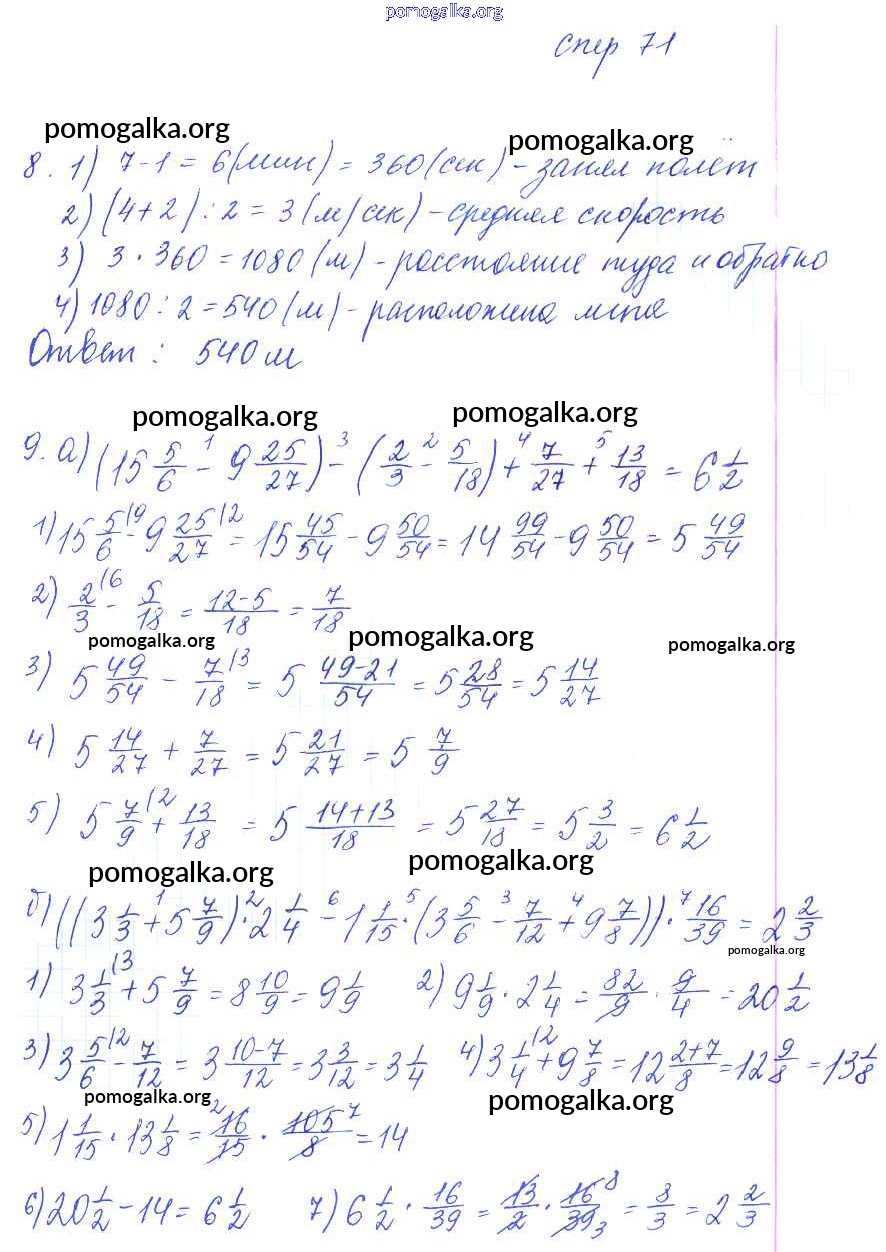 pomogalka.org
спер 71
pomogalka.org
pomogalka.org
8. 1) 7-1 = 6(мин) = 360(сек) - занял полёт
2) (4+2) : 2 = 3 (м/сек) - средняя скорость
3) 3 · 360 = 1080 (м) - расстояние туда и обратно
4) 1080 : 2 = 540 (м) - расположена мель
Ответ : 540 м
pomogalka.org pomogalka.org
9. а) (15 5/6 -¹ 9 25/27) -³ (2/3 -² 5/18) +⁴ 7/27 +⁵ 13/18 = 6 1/2
1) 15 5/6 |9 - 9 25/27 |2 = 15 45/54 - 9 50/54 = 14 99/54 - 9 50/54 = 5 49/54
2) 2/3 |6 - 5/18 = 12-5/18 = 7/18
pomogalka.org pomogalka.org pomogalka.org
3) 5 49/54 - 7/18 |3 = 5 49-21/54 = 5 28/54 = 5 14/27
4) 5 14/27 + 7/27 = 5 21/27 = 5 7/9
5) 5 7/9 |2 + 13/18 = 5 14+13/18 = 5 27/18 = 5 3/2 = 6 1/2
pomogalka.org pomogalka.org
б) ((3 1/3 +¹ 5 7/9) ·² 2 1/4 -⁶ 1 1/15 ·⁵ (3 5/6 -³ 7/12 +⁴ 9 7/8)) ·⁷ 16/39 = 2 2/3
pomogalka.org
1) 3 1/3 |3 + 5 7/9 = 8 10/9 = 9 1/9 2) 9 1/9 · 2 1/4 = 82/9 · 9/4 = 20 1/2
3) 3 5/6 |2 - 7/12 = 3 10-7/12 = 3 3/12 = 3 1/4 4) 3 1/4 |2 + 9 7/8 = 12 2+7/8 = 12 9/8 = 13 1/8
pomogalka.org pomogalka.org
5) 1 1/15 · 13 1/8 = ²16/15 · 105⁷/8 = 14
6) 20 1/2 - 14 = 6 1/2 7) 6 1/2 · 16/39 = 13/2 · 16⁸/39₃ = 8/3 = 2 2/3